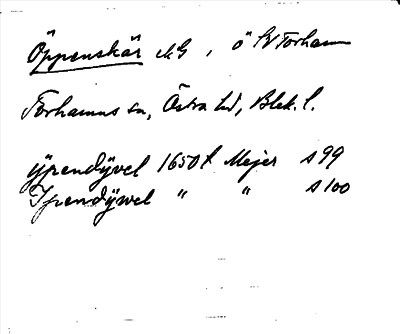 Öppenskär NG, ö SV Torhamn
Torhamns sn, Östra hd, Blek. l.
ÿpendÿvel 1650 t Mejer s 99
Ypendÿwel " " s 100